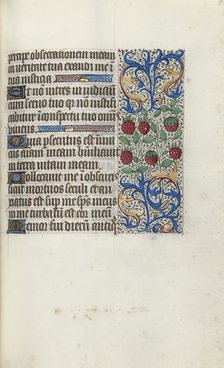 percipe obsecrationem meam
in veritate tua exaudi me i
tua iusticia
Et nō intres in iudiciū
cum servo tuo q̄ nō iustifi
cabitur ī conspectu tuo om̄is
vivens
Quia persecutus est inimi
cus aīam meam humiliavit
in terra vitam meam
Collocavit me in obscuris
sicut mortuos seculi et anxi
atus est sup me sp̄s meus ī
me turbatū est cor meum
Memor fui dierum antiq̄